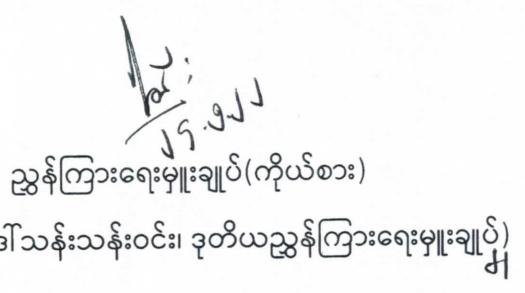 ၂၄.၅.၂၂
ညွှန်ကြားရေးမှူးချုပ်(ကိုယ်စား)
ဒေါ်သန်းသန်းဝင်း၊ ဒုတိယညွှန်ကြားရေးမှူးချုပ်)